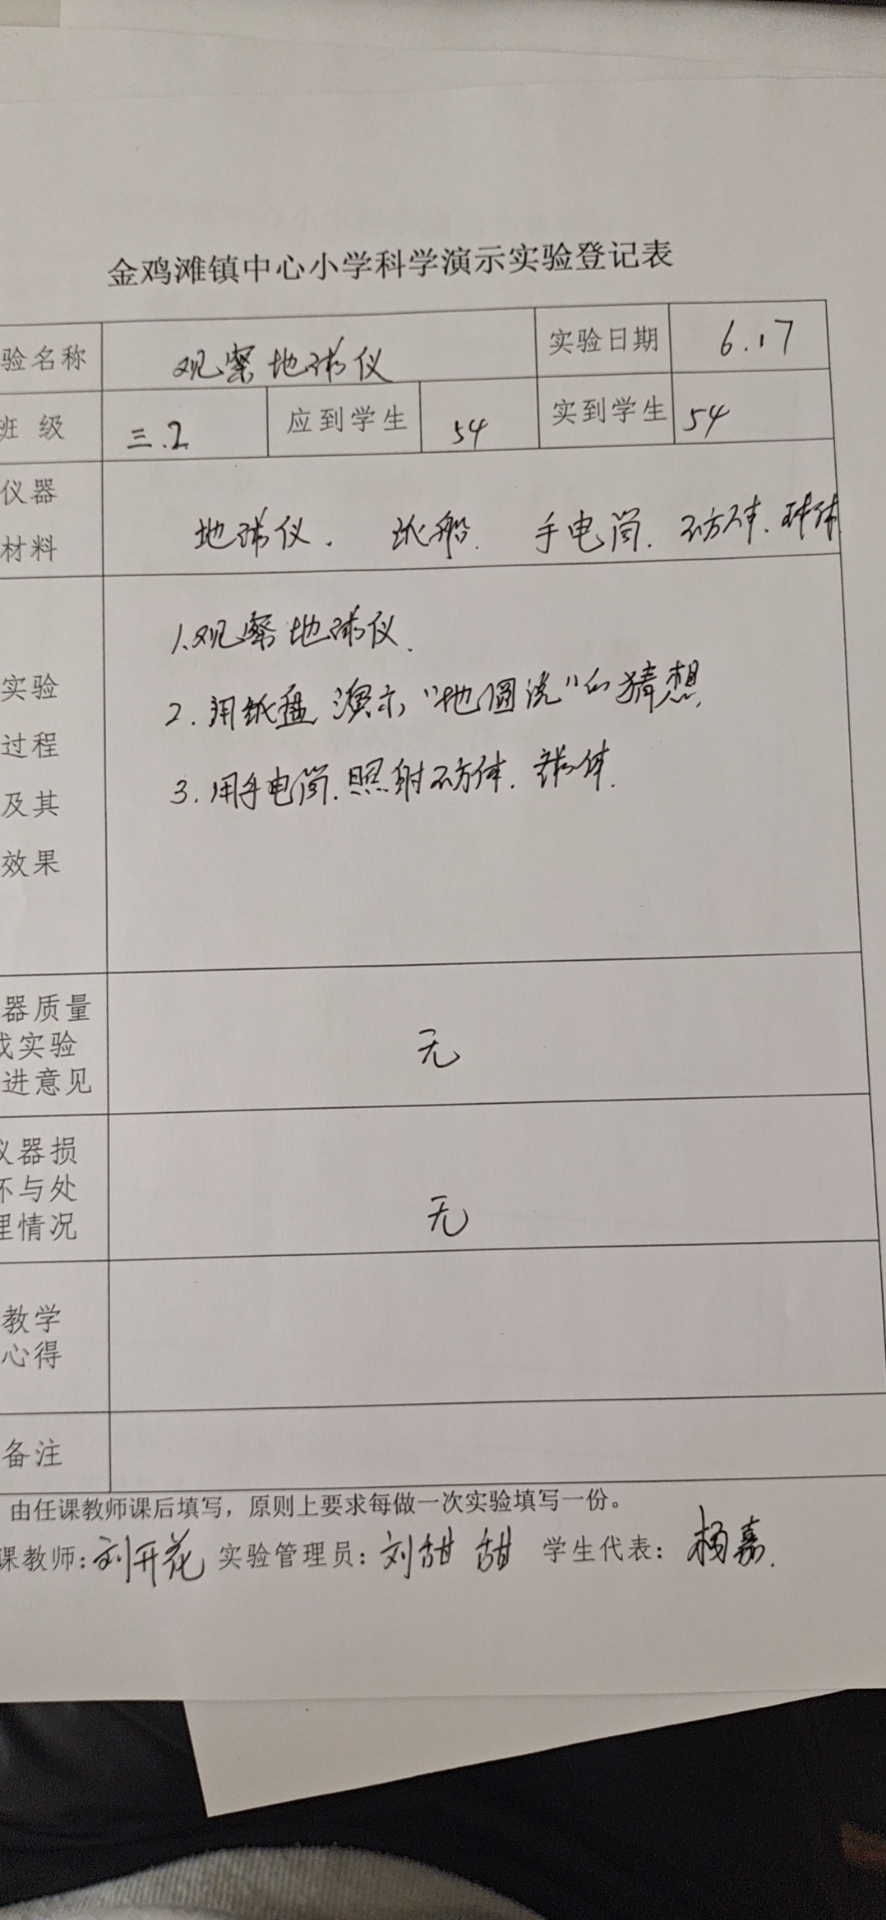 金鸡滩镇中心小学科学演示实验登记表
验名称 观察地球仪 实验日期 6.17
班 级 三.2 应到学生 54 实到学生 54
仪器
材料
地球仪. 船. 手电筒. 方体. 球体
实验
过程
及其
效果
1.观察地球仪.
2.用纸盘演示“地圆说”的猜想
3.用手电筒.照射方体.球体.
器质量
实验
进意见
无
仪器损
坏与处
理情况
无
教学
心得
备注
由任课教师课后填写，原则上要求每做一次实验填写一份。
课教师：刘开花 实验管理员：刘甜甜 学生代表：杨嘉.